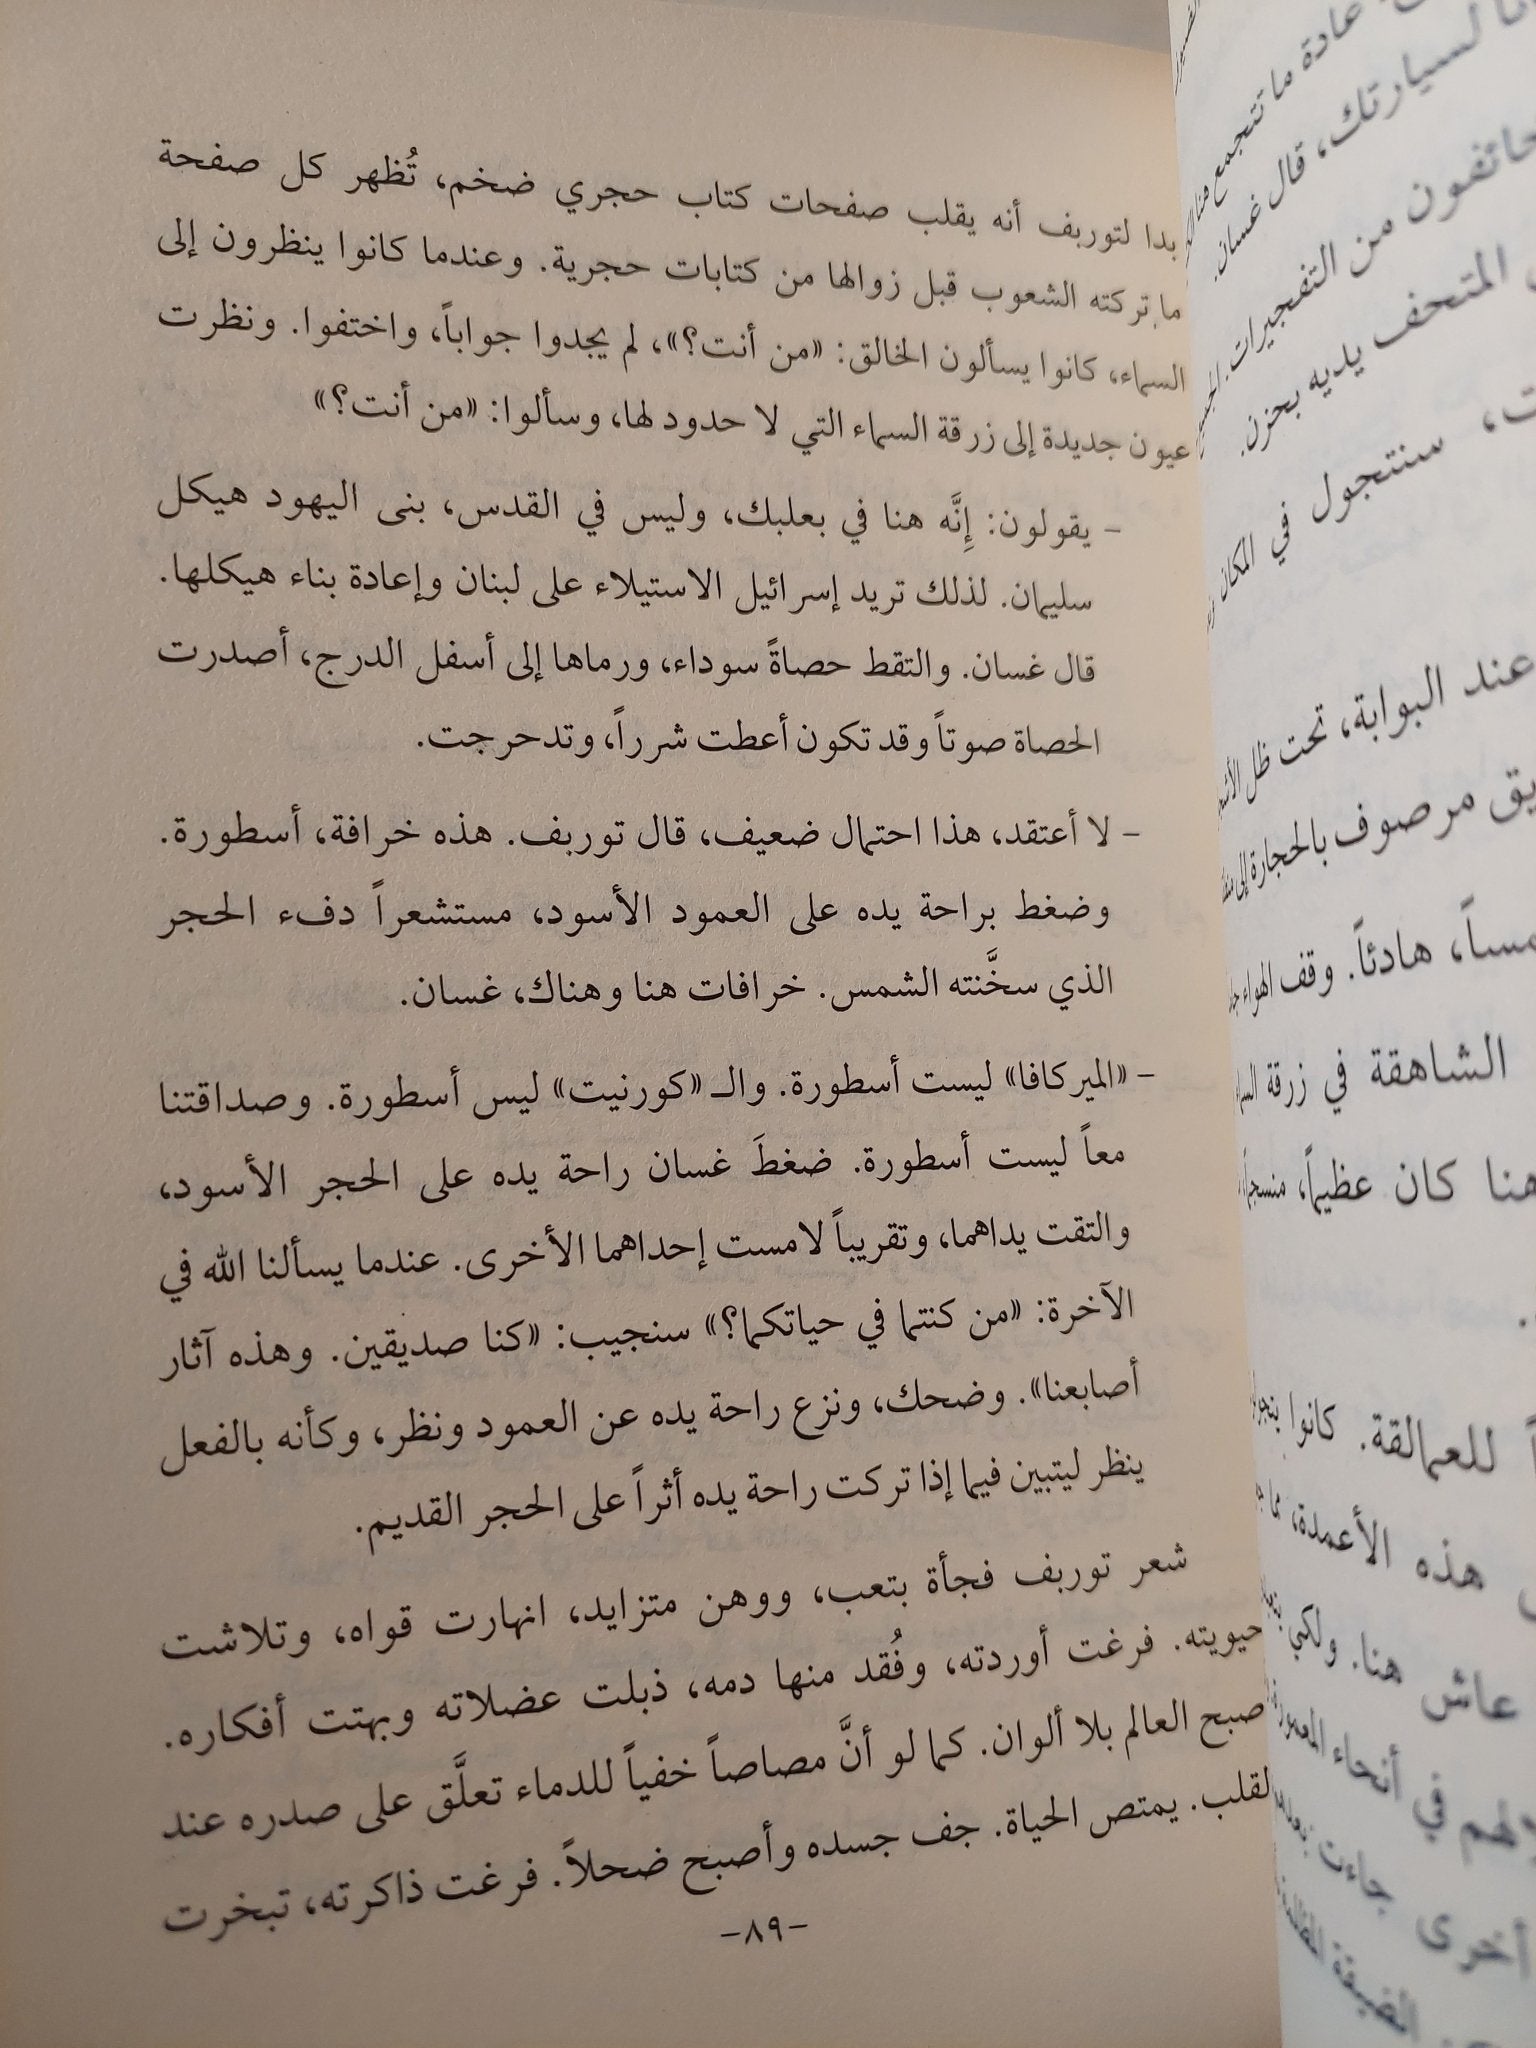 بدا لتوربف أنه يقلب صفحات كتاب حجري ضخم، تُظهر كل صفحة
ما تركته الشعوب قبل زوالها من كتابات حجرية. وعندما كانوا ينظرون إلى
السماء، كانوا يسألون الخالق: «من أنت؟»، لم يجدوا جواباً، واختفوا. ونظرت
عيون جديدة إلى زرقة السماء التي لا حدود لها، وسألوا: «من أنت؟»
– يقولون: إِنَّه هنا في بعلبك، وليس في القدس، بنى اليهود هيكل
سليمان. لذلك تريد إسرائيل الاستيلاء على لبنان وإعادة بناء هيكلها.
قال غسان. والتقط حصاةً سوداء، ورماها إلى أسفل الدرج، أصدرت
الحصاة صوتاً وقد تكون أعطت شرراً، وتدحرجت.
– لا أعتقد، هذا احتمال ضعيف، قال توربف. هذه خرافة، أسطورة.
وضغط براحة يده على العمود الأسود، مستشعراً دفء الحجر
الذي سخَّنته الشمس. خرافات هنا وهناك، غسان.
– «الميركافا» ليست أسطورة. والـ «كورنيت» ليس أسطورة. وصداقتنا
معاً ليست أسطورة. ضغطَ غسان راحة يده على الحجر الأسود،
والتقت يداهما، وتقريباً لامست إحداهما الأخرى. عندما يسألنا الله في
الآخرة: «من كنتما في حياتكما؟» سنجيب: «كنا صديقين. وهذه آثار
أصابعنا». وضحك، ونزع راحة يده عن العمود ونظر، وكأنه بالفعل
ينظر ليتبين فيما إذا تركت راحة يده أثراً على الحجر القديم.
شعر توربف فجأة بتعب، ووهن متزايد، انهارت قواه، وتلاشت
حيويته. فرغت أوردته، وفُقد منها دمه، ذبلت عضلاته وبهتت أفكاره.
صبح العالم بلا ألوان. كما لو أنَّ مصاصاً خفياً للدماء تعلَّق على صدره عند
لقلب. يمتص الحياة. جف جسده وأصبح ضحلاً. فرغت ذاكرته، تبخرت
–٨٩–
عادة ما تتجمع
لسيارتك، قال غسان.
خائفون من التفجيرات.
المتحف يديه بحزن.
سنتجول في المكان
عند البوابة، تحت ظل
مرصوف بالحجارة إلى
هادئاً. وقف الهواء
الشاهقة في زرقة
هنا كان عظيماً،
للعمالقة. كانوا
هذه الأعمدة،
عاش هنا. ولكي
في أنحاء
أخرى جاءت